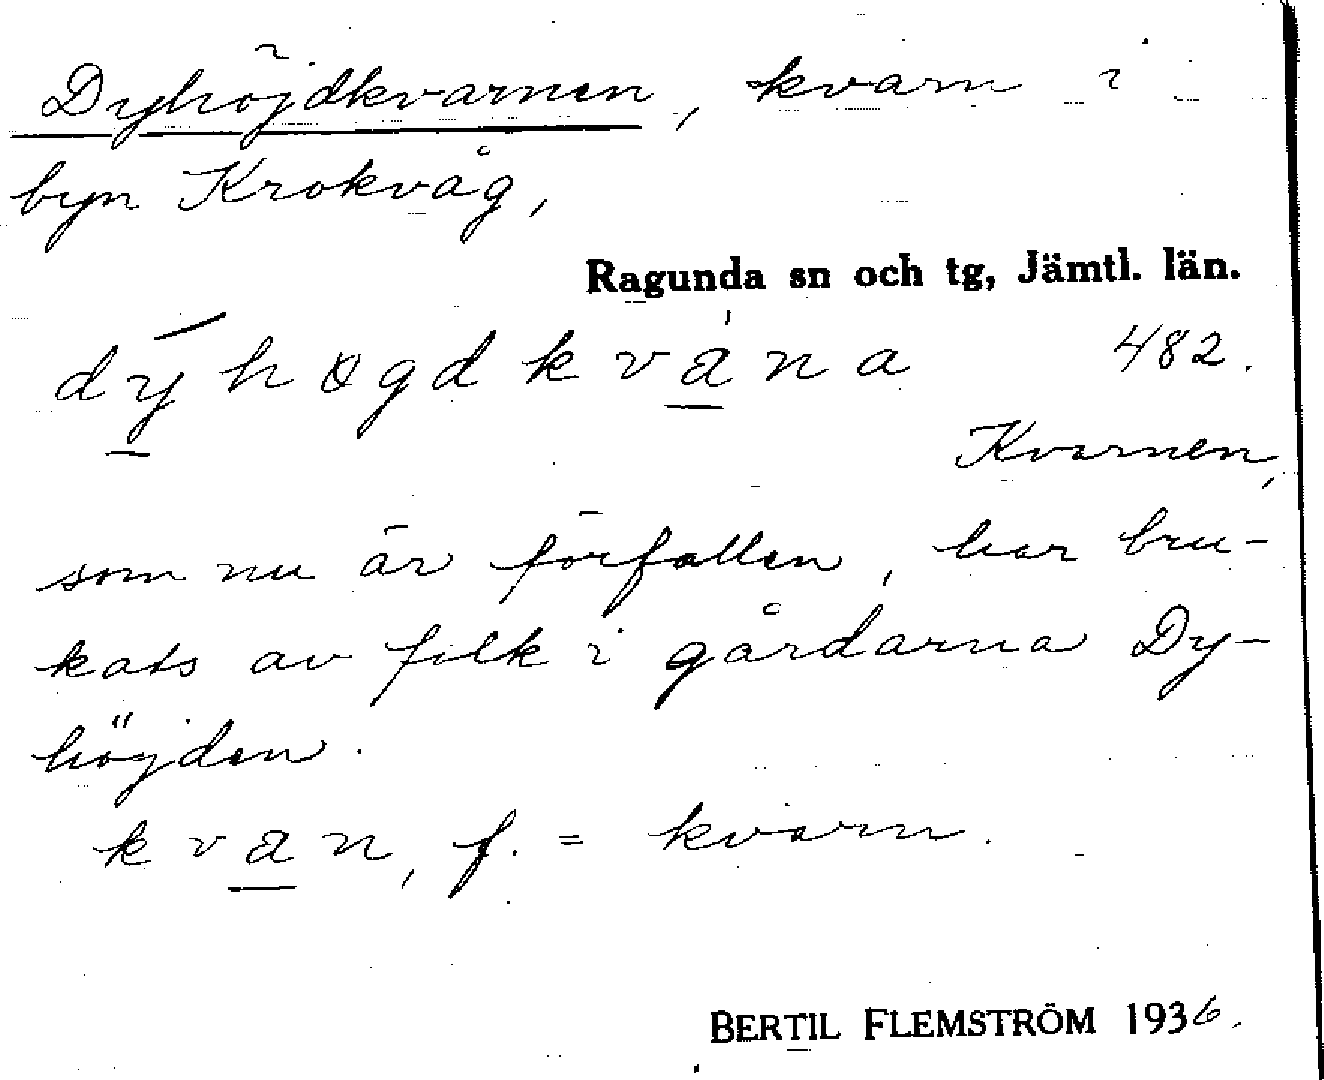 Dyhöjdkvarnen, kvarn i
byn Krokvåg,
Ragunda sn och tg, Jämtl. län.
dý̱høgdkva̱̍na 482.
Kvarnen,
som nu är förfallen, har bru-
kats av folk i gårdarna Dy-
höjden.
kva̱n, f. = kvarn.
BERTIL FLEMSTRÖM 1936.